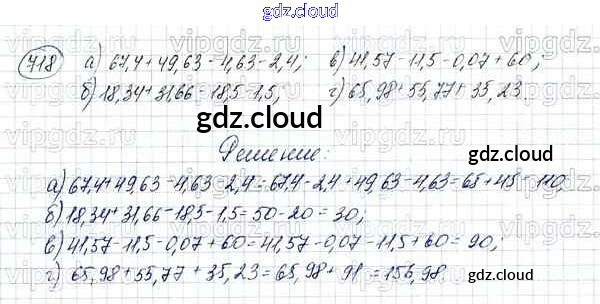 gdz.cloud
718 а) 67,4+49,63-4,63-2,4; в) 41,57-11,5-0,07+60;
б) 18,34+31,66-18,5-1,5; г) 65,98+55,77+35,23.
gdz.cloud
Решение:
gdz.cloud
а) 67,4+49,63-4,63-2,4=67,4-2,4+49,63-4,63=65+45=110;
б) 18,34+31,66-18,5-1,5=50-20=30;
в) 41,57-11,5-0,07+60=41,57-0,07-11,5+60=90;
г) 65,98+55,77+35,23=65,98+91=156,98
gdz.cloud